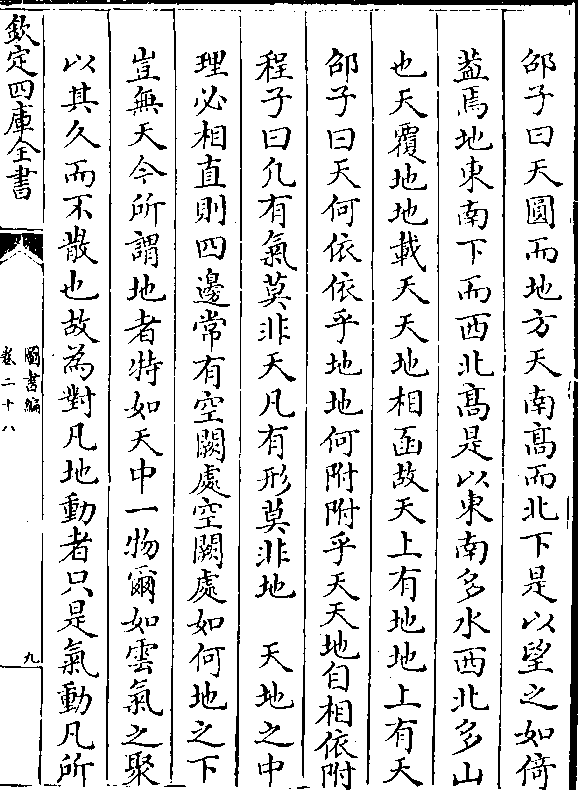 邵子曰天圓而地方天南髙而北下是以望之如倚
葢焉地東南下而西北髙是以東南多水西北多山
也天覆地地載天天地相函故天上有地地上有天
邵子曰天何依依乎地地何附附乎天天地自相依附
程子曰凡有氣莫非天凡有形莫非地　天地之中
理必相直則四邊常有空闕處空闕處如何地之下
豈無天今所謂地者特如天中一物爾如雲氣之聚
以其久而不散也故為對凡地動者只是氣動凡所
欽定四庫全書
圖書編
卷二十八
九